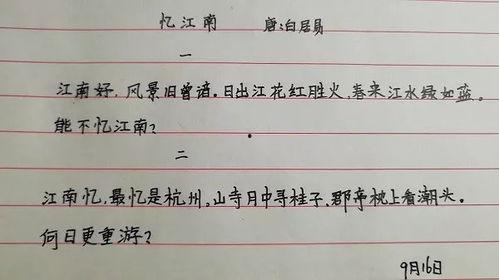 忆江南 唐:白居易
一
江南好,风景旧曾谙。日出江花红胜火,春来江水绿如蓝。
能不忆江南?
二
江南忆,最忆是杭州,山寺月中寻桂子,郡亭枕上看潮头。
何日更重游?
9月16日